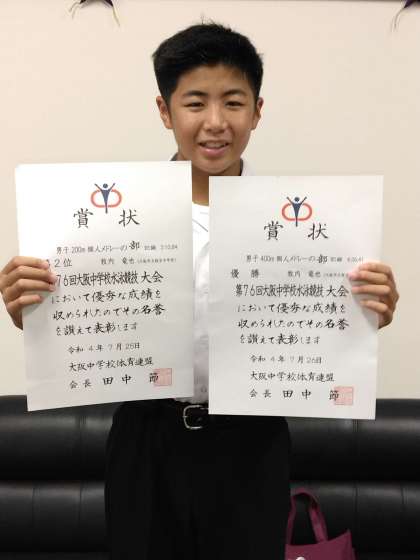 賞状
男子200m個人メドレーの部 記録 2:10.04
2位 牧内 竜也
第76回大阪中学校水泳競技大会
において優秀な成績を
収められたのでその名誉
を讃えて表彰します
令和4年7月26日
大阪中学校体育連盟
会長 田中 節
賞状
男子400m個人メドレーの部 記録
優勝 牧内 竜也
第76回大阪中学校水泳競技大会
において優秀な成績を
収められたのでその名誉
を讃えて表彰します
令和4年7月25日
大阪中学校体育連盟
会長 田中 節